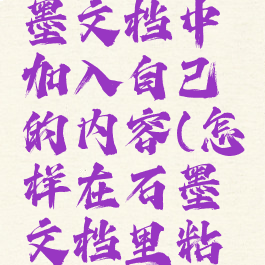 墨文档中
加入自己
的内容(怎
样在石墨
文档里粘